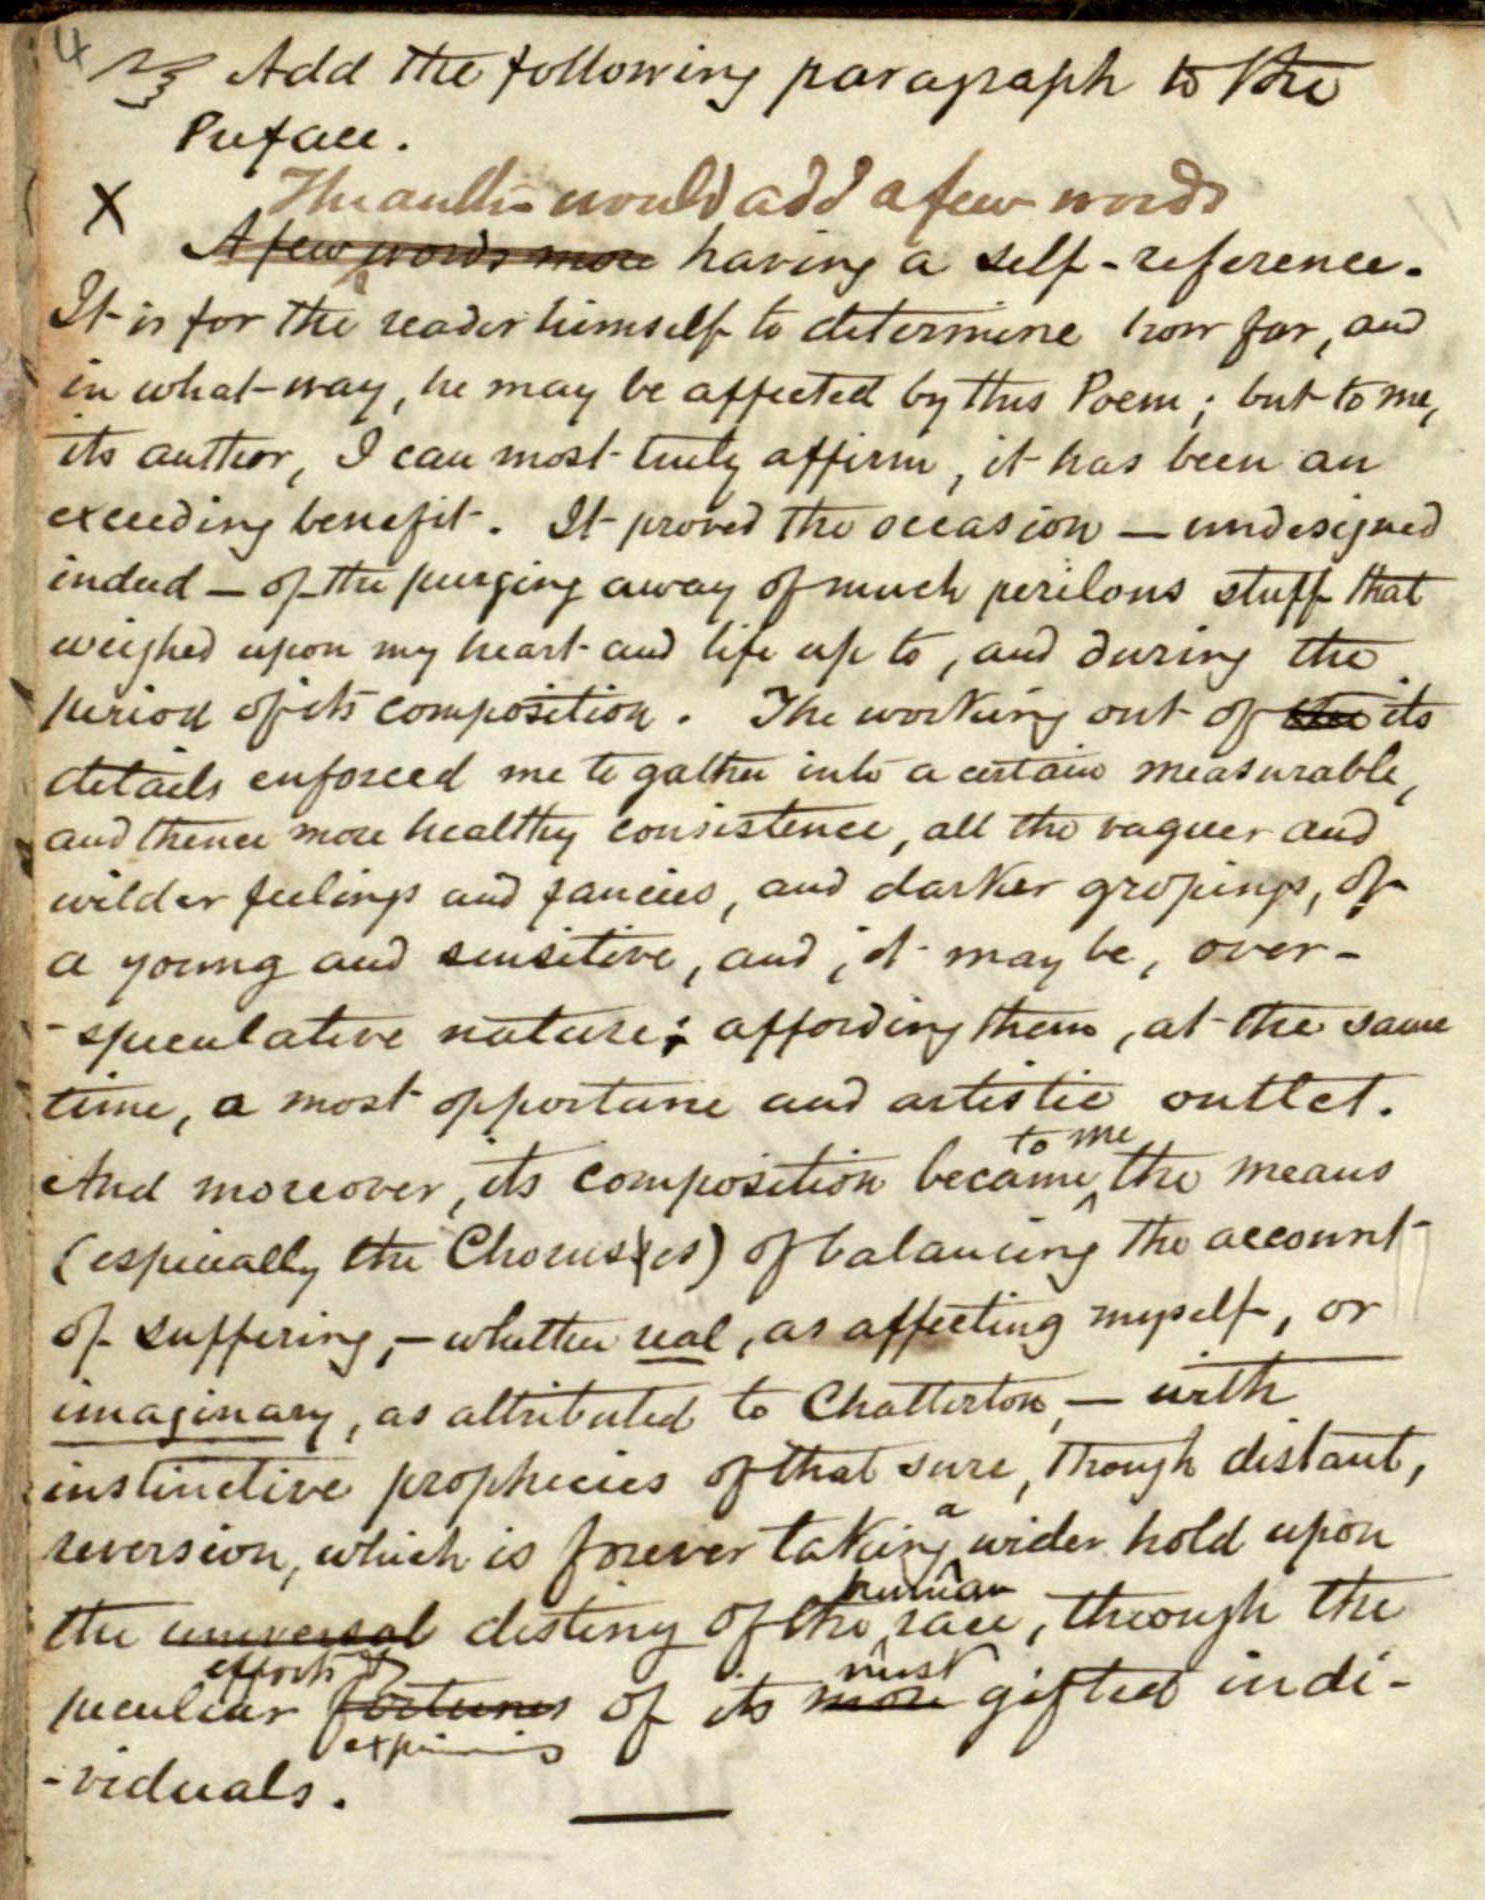 4
Add the following paragraph to the
Preface.
X The author would add a few words
A few words more having a self-reference.
It is for the reader himself to determine how far, and
in what way, he may be affected by this Poem; but to me,
its author, I can most truly affirm, it has been an
exceeding benefit. It proved the occasion — undesigned
indeed — of the purging away of much perilous stuff that
weighed upon my heart and life up to, and during the
period of its composition. The working out of the its
details enforced me to gather into a certain measurable,
and thence more healthy consistence, all the vaguer and
wilder feelings and fancies, and darker gropings, of
a young and sensitive, and, it may be, over-
-speculative nature; affording them, at the same
time, a most opportune and artistic outlet.
to me
And moreover, its composition became ^ the means
(especially the Chorusses) of balancing the account
of suffering, — whether real, as affecting myself, or
imaginary, as attributed to Chatterton, — with
instinctive prophecies of that sure, though distant,
a
reversion, which is forever taking ^ wider hold upon
human
the universal destiny of the ^ race, through the
efforts & most
peculiar fortunes of its more gifted indi-
-viduals.